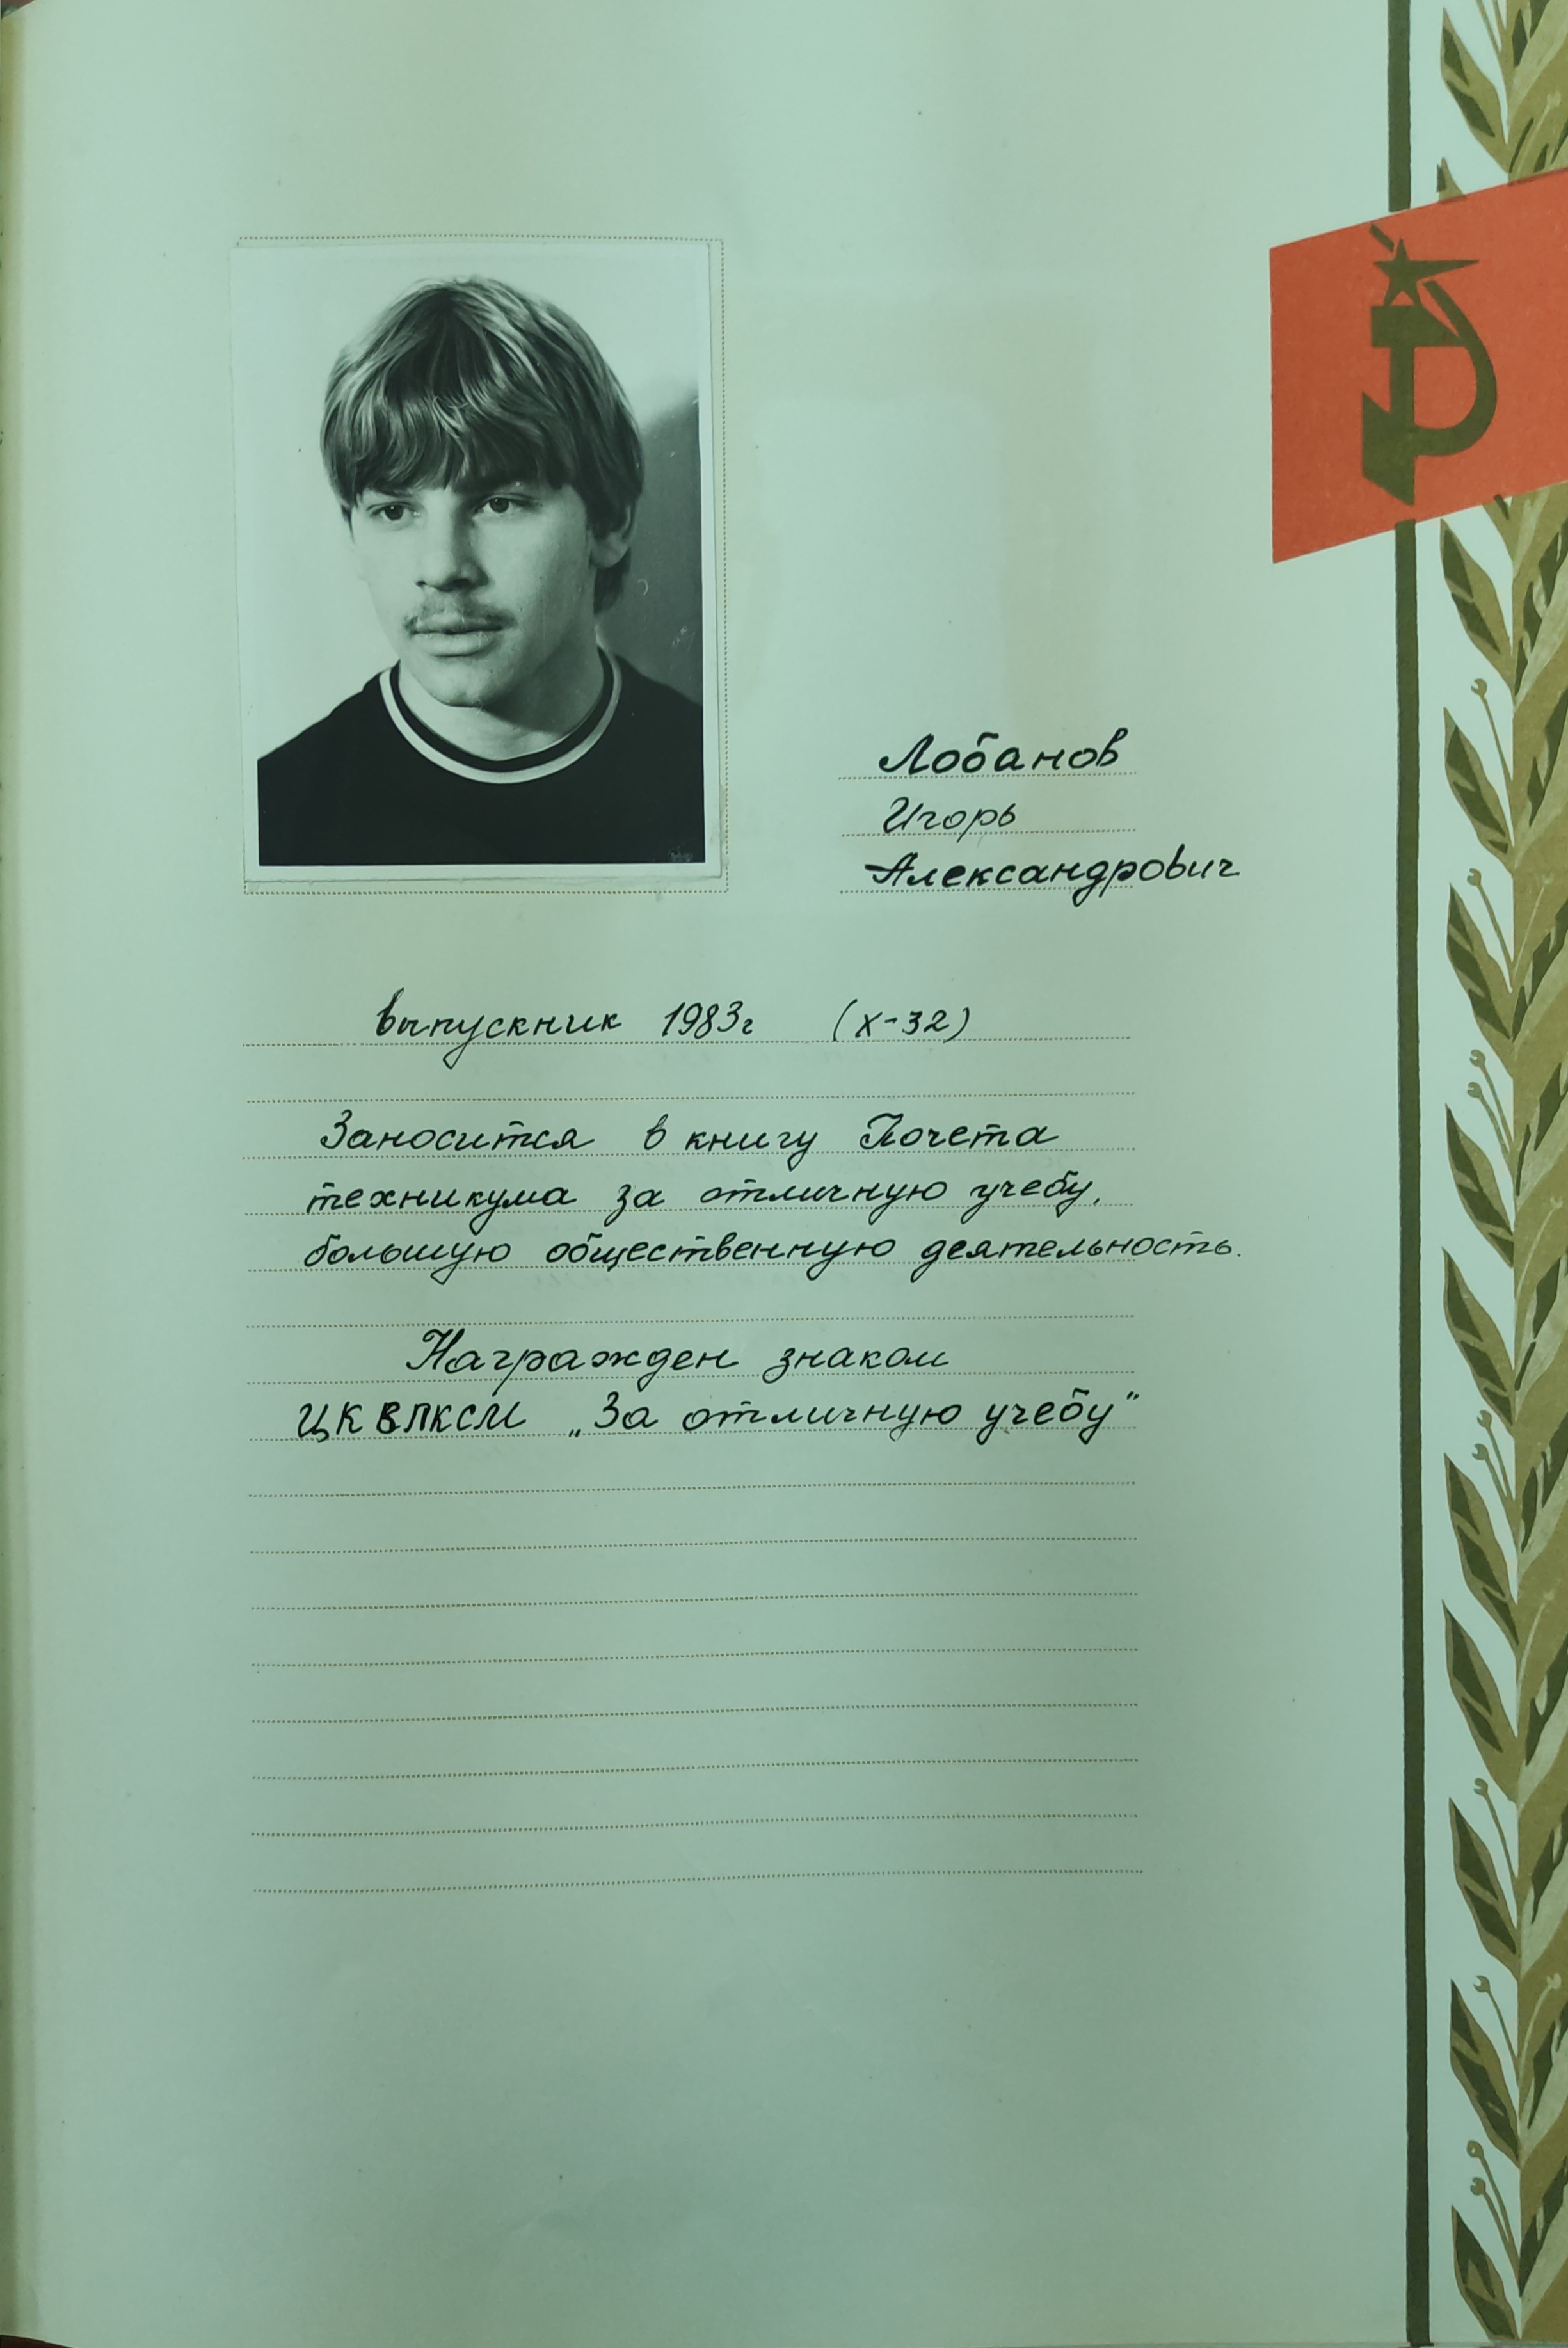 Лобанов
Игорь
Александрович
выпускник 1983г (х-32)
Заносится в книгу Почета
техникума за отличную учебу,
большую общественную деятельность.
Награжден знаком
ЦК ВЛКСМ „За отличную учебу"